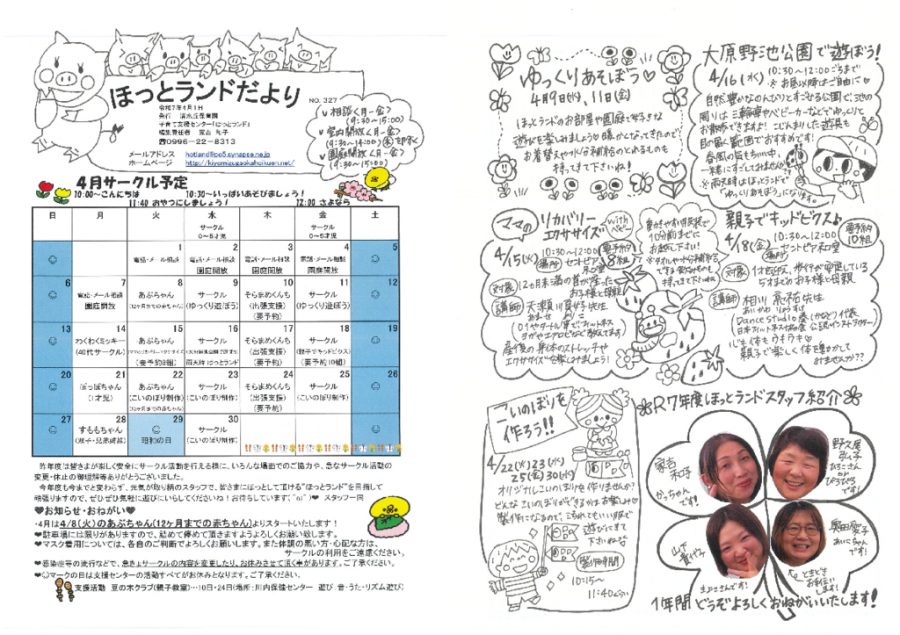 ほっとランドだより
NO. 327
令和7年4月1日
発行 清水丘保育園
子育て支援センター「ほっとランド」
編集責任者
☎0996-22-8313
メールアドレス hotland@po5.synapse.ne.jp
ホームページ http://kiyomizugaokahoikuen.net/
♡相談〈月〜金〉
(9:30〜15:00)
♡室内開放〈月〜金〉
♡園庭開放〈月〜金〉
(9:30〜15:00)
4月サークル予定
10:00〜こんにちは 10:30〜いっぱいあそびましょう!
11:40 おやつにしましょう♪ 12:00 さよなら
日 月 火 水 木 金 土
サークル
0〜5才児
サークル
0〜5才児
1 2 3 4 5
電話・メール相談 電話・メール相談 電話・メール相談 電話・メール相談
園庭開放 園庭開放 園庭開放
6 7 8 9 10 11 12
電話・メール相談 あぶちゃん サークル そらまめくんち サークル
園庭開放 (12ヶ月までの赤ちゃん) (ゆっくり遊ぼう) (出張支援) (ゆっくり遊ぼう)
(要予約)
13 14 15 16 17 18 19
わくわくミッキー あぶちゃん サークル そらまめくんち サークル
(40代サークル) (出張支援) (親子でキッドビクス)
(要予約8組) 雨天時 ほっとランド (要予約) (要予約10組)
20 21 22 23 24 25 26
ぽっぽちゃん あぶちゃん サークル そらまめくんち サークル
(1才児) (こいのぼり制作) (こいのぼり制作) (出張支援) (こいのぼり制作)
(12ヶ月までの赤ちゃん) (要予約)
27 28 29 30
すももちゃん サークル
(双子・兄弟姉妹) 昭和の日 (こいのぼり制作)
昨年度は皆さまが楽しく安全にサークル活動を行える様に、いろんな場面でのご協力や、急なサークル活動の
変更・休止の御理解ありがとうございました。
今年度も今までと変わらず、元気が取り柄のスタッフで、皆さまにほっとして頂ける“ほっとランド”を目指して
頑張りますので、ぜひぜひ気軽に遊びにいらしてくださいね!お待ちしています(^o^)♥ スタッフ一同
♥お知らせ・おねがい♥
・4月は4/8(火)のあぶちゃん(12ヶ月までの赤ちゃん)よりスタートいたします!
♥駐車場には限りがありますので、詰めて停めて頂きますようよろしくお願い致します。
♥マスク着用については、各自のご判断でよろしくお願いします。また体調の悪い方・心配な方は、
サークルの利用をご遠慮ください。
♥感染症等の流行などで、急きょサークルの内容を変更したり、お休みさせて頂く事があります。ご了承ください。
♥☺マークの日は支援センターの活動すべてがお休みとなります。ご了承ください。
支援活動 豆の木クラブ(親子教室)…10日・24日(場所:川内保健センター 遊び:音・うた・リズム遊び)
ゆっくりあそぼう♡
4月9日(水)、11日(金)
ほっとランドのお部屋や園庭で好きな
遊びを楽しみましょう♡暖かくなってきたので
お着替えや水分補給のとれるものも
持ってきて下さいね!
大原野池公園で遊ぼう!
4/16(水) 10:30〜12:00ごろまで
※お昼以降はご自由に♡
自然豊かなのんびりとすごせる公園で、池の
周りは三輪車やベビーカーなどでゆっくりと
お散歩できますよ!こじんまりした遊具も
目の届く範囲でおすすめです!
※雨天時はほっとランドで
「ゆっくりあそぼう」になります。
ママのリカバリーエクササイズ withベビー
4/15(火) 10:30〜12:00
場所 セントピア
要予約 8組
動きやすい服装で
10分前までに
お越し下さい!
対象 12ヶ月未満の首が座った
お子様と母親
講師
産後の身体のストレッチや
エクササイズを楽しみましょう!
親子でキッドビクス♪
4/18(金) 10:30〜12:00
場所 セントピア
要予約 10組
対象 1才以上、歩行が可能している
5才までのお子様と母親
講師 相川 先生
Dance Studio奏(かなで)代表
心も体もウキウキ♡
親子で楽しく体を動かして
みませんか??
こいのぼりを
作ろう!!
4/22(火)23(水)
25(金)30(水)
オリジナルこいのぼりを作りませんか?
どんなこいのぼりができるかはお楽しみ♡
製作になるので、汚れてもいい服で
遊びにきて
下さいね☆
製作時間
10:15〜
11:40ぐらい
R7年度ほっとランドスタッフ紹介
かっちゃん
です!
ひろこさん
です!
まよさんです!
あいちゃん
です!
ときどき
お手伝い
します!
1年間どうぞよろしくおねがいいたします!